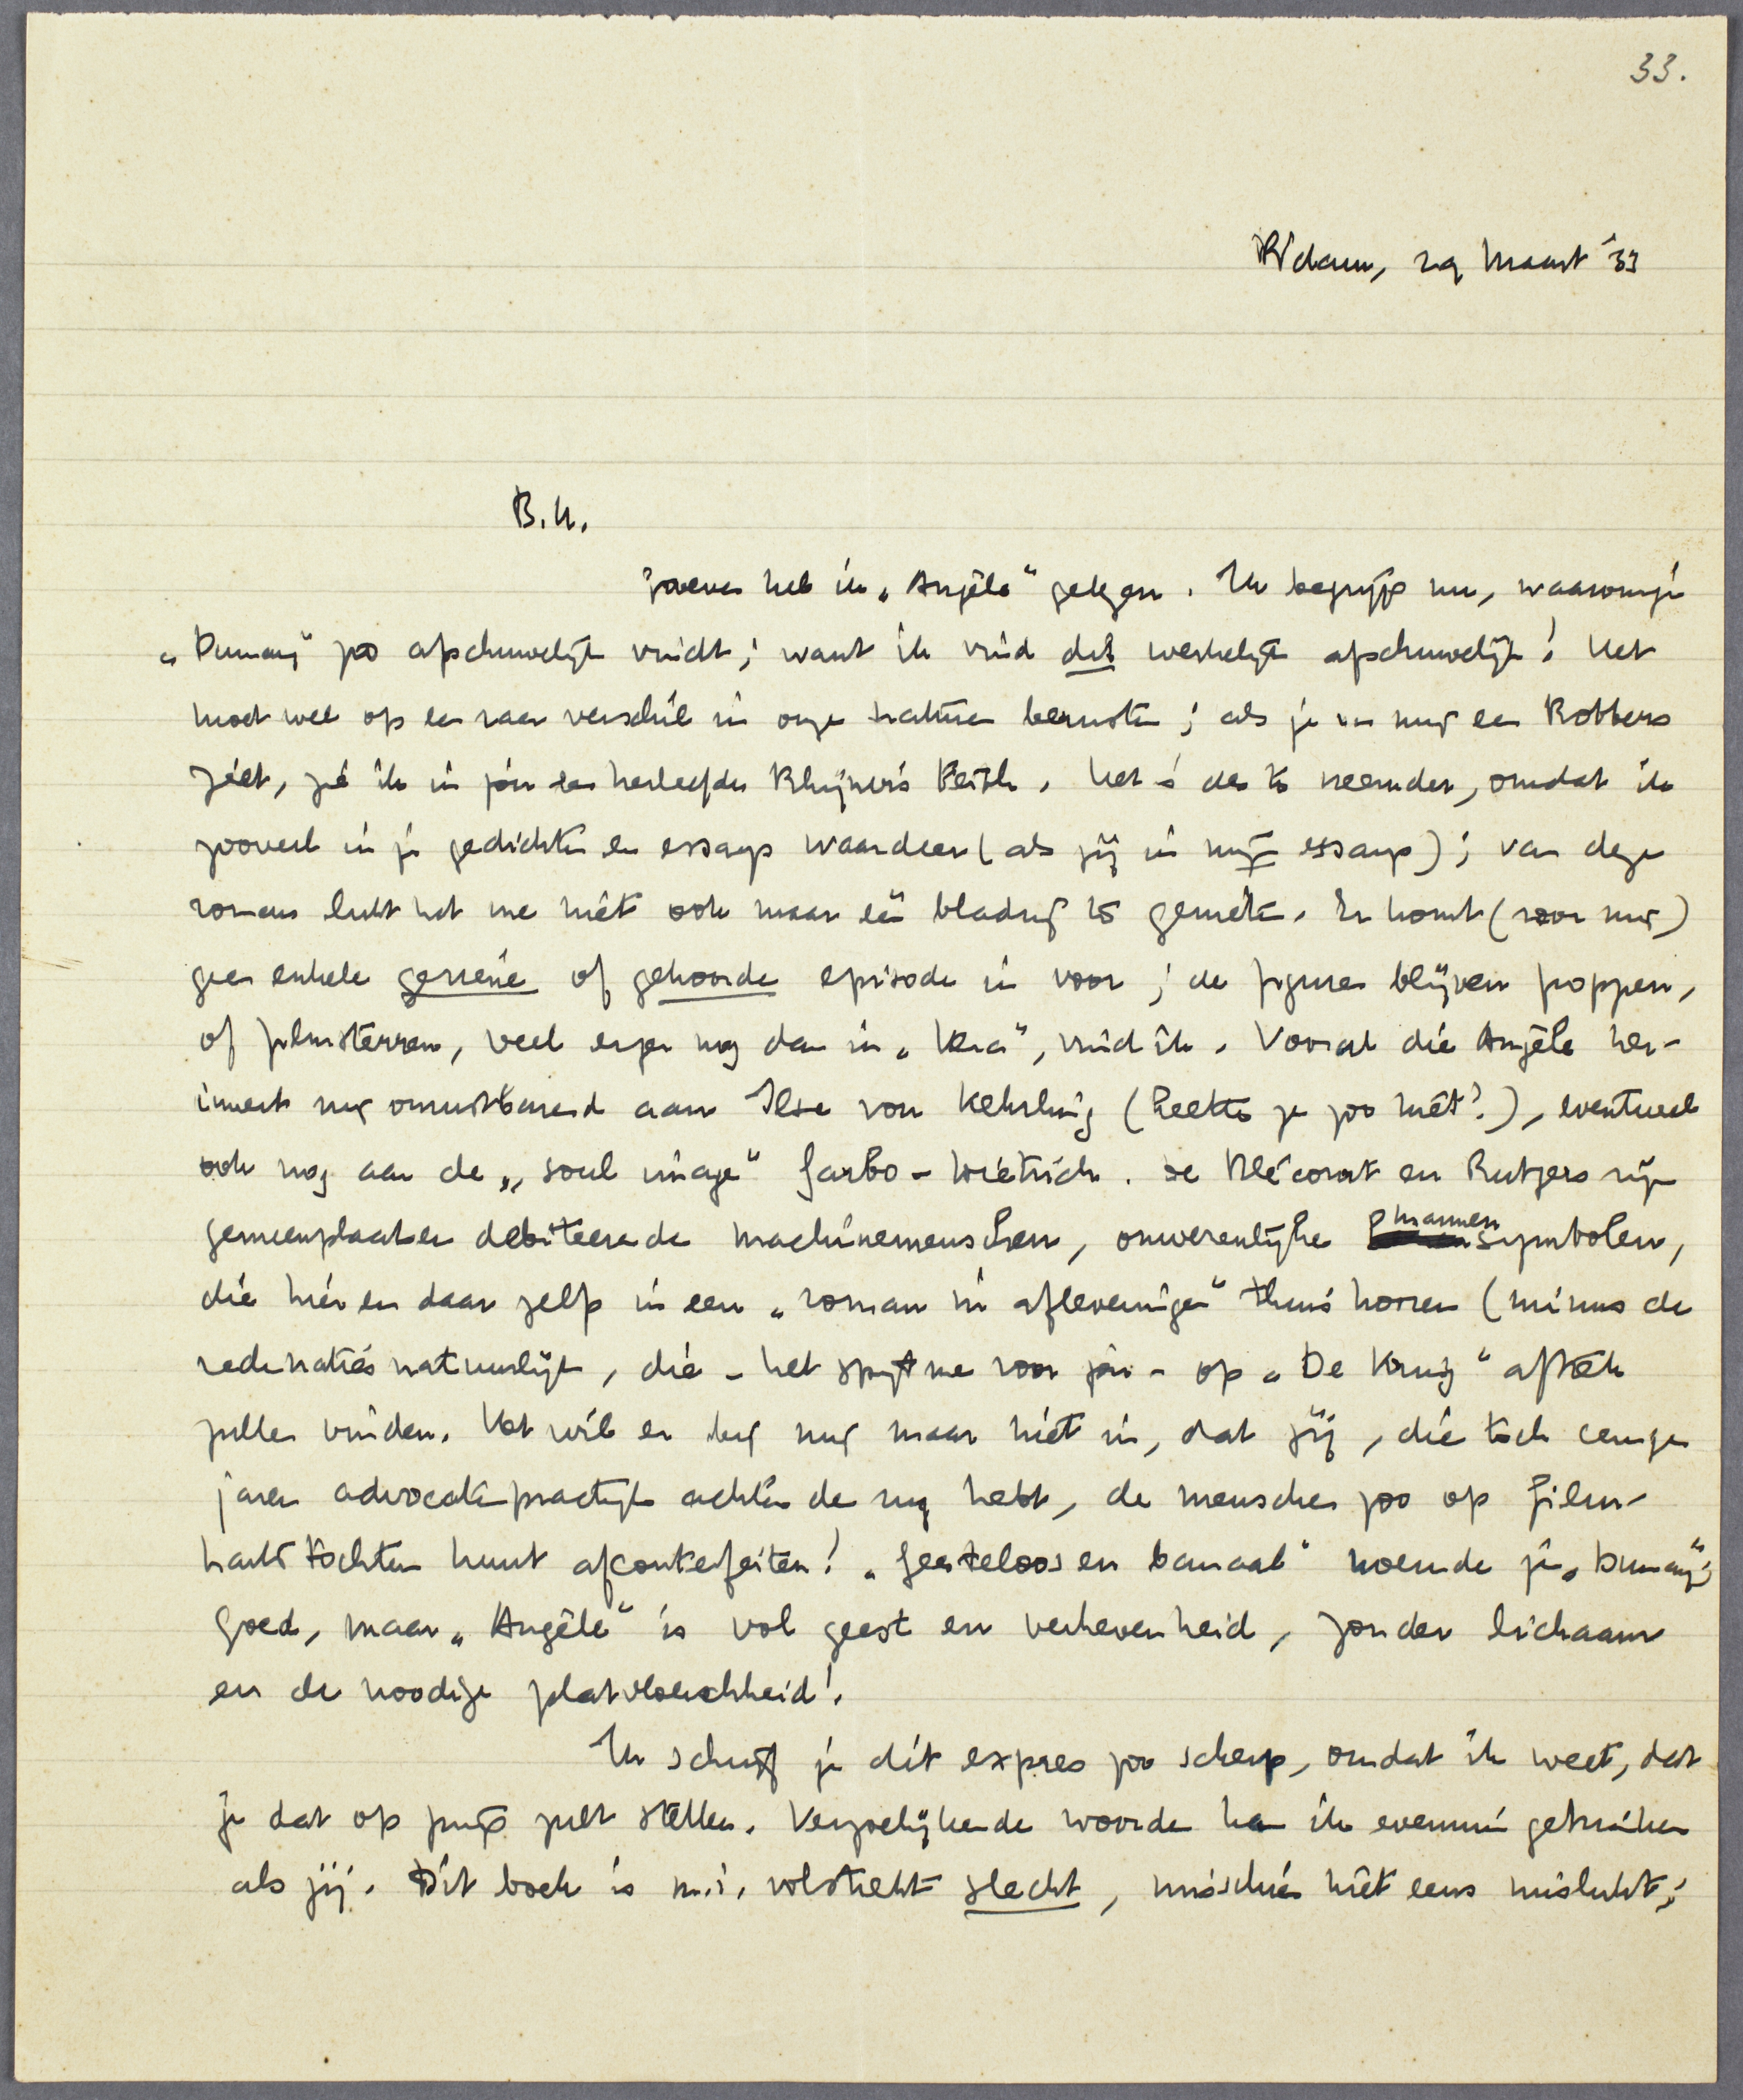 33.
R'dam, 29 Maart '33
B.M.
Zooeven heb ik „Angèle" gelezen. Ik begrijp nu, waarom je
„Dumay" zoo afschuwelijk vindt; want ik vind dit werkelijk afschuwelijk! Het
moet wel op een raar verschil in onze naturen berusten; als je in mij een Robbers
ziet, zie ik in jou een herleefden Rhijnvis Feith. Het is des te vreemder, omdat ik
zooveel in je gedichten en essays waardeer (als jij in mijn essays); van deze
roman lukt het me niet ook maar één bladzij te genieten. Er komt (voor mij)
geen enkele geziene of gehoorde episode in voor; de figuren blijven poppen,
of filmsterren, veel erger nog dan in „Vera", vind ik. Vooral die Angèle her-
innert mij onuitstaanbaar aan Ilse von Kehrling (heette ze zoo niet?), eventueel
ook nog aan de „soul image" Garbo-Dietrich. De Blécourt en Rutgers zijn
gemeenplaatsen debiteerende machinemenschen, onwezenlijke mannensymbolen,
die hier en daar zelfs in een „roman in afleveringen" thuis hooren (minus de
redenaties natuurlijk, die - het spijt me voor jou - op „De Kruig" aftrek
zullen vinden. Het wil er bij mij maar niet in, dat jij, die toch eenige
jaren advocatenpractijk achter de rug hebt, de menschen zoo op film-
hartstochten kunt afconterfeiten! „Geesteloos en banaal" noemde je „Dumay";
goed, maar „Angèle" is vol geest en verhevenheid, zonder lichaam
en de noodige platvloerschheid!
Ik schrijf je dit expres zoo scherp, omdat ik weet, dat
je dat op prijs zult stellen. Vergoelijkende woorden kan ik evenmin gebruiken
als jij. Dit boek is m.i. volstrekt slecht, misschien niet eens mislukt;